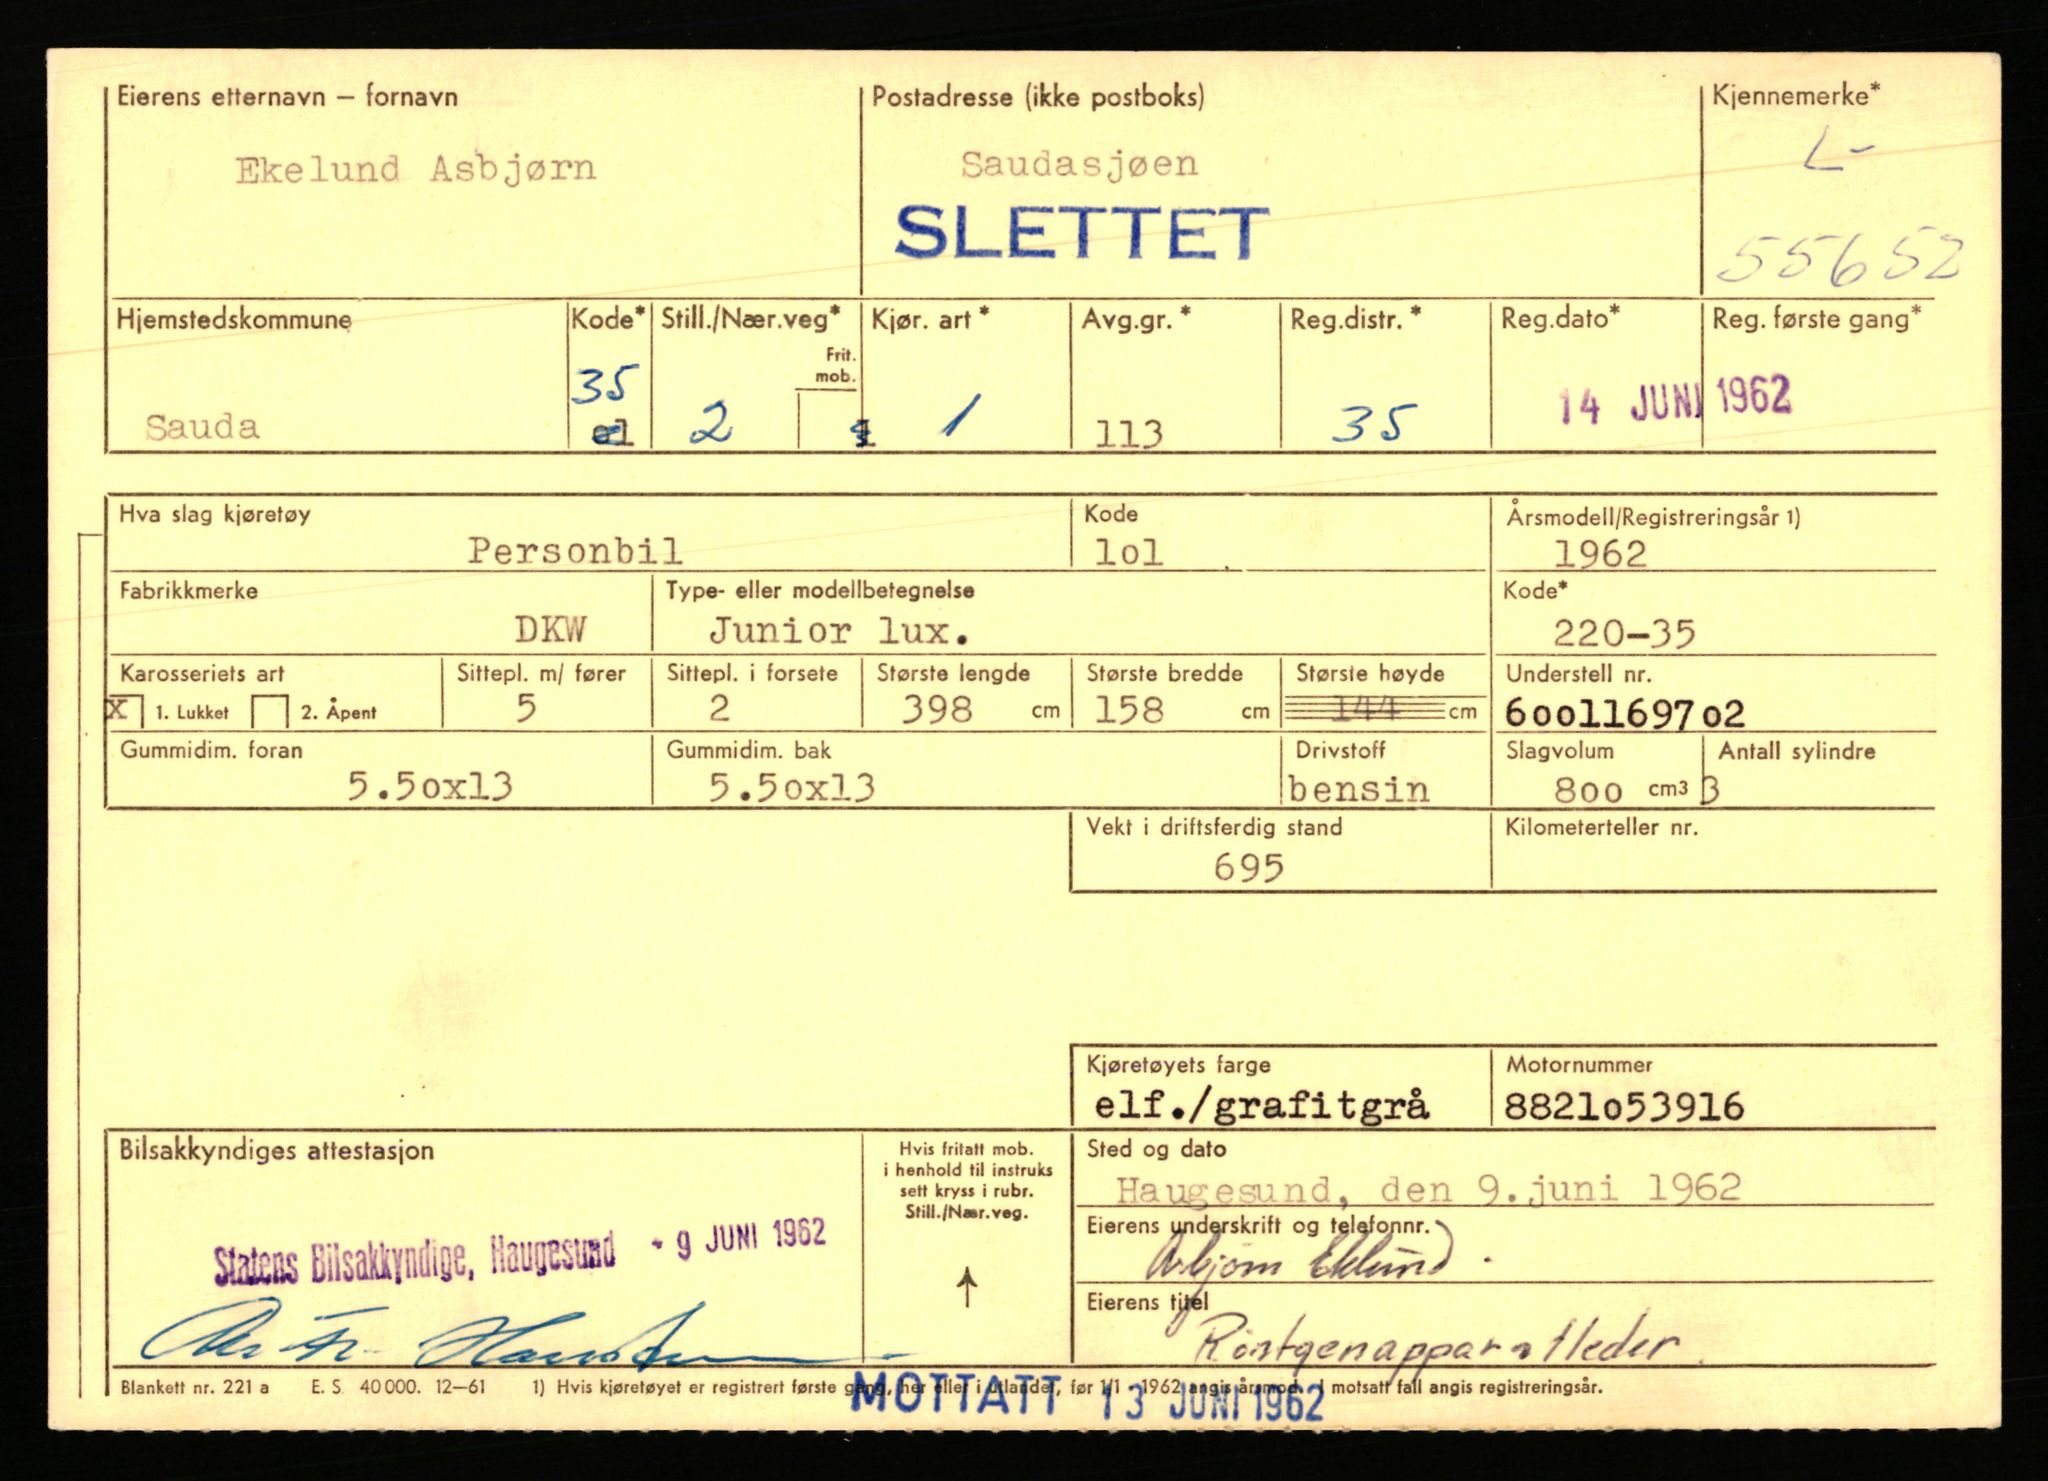 Eierens etternavn – fornavn
Postadresse (ikke postboks)
Kjennemerke*
Ekelund Asbjørn
Saudasjøen
L-
SLETTET
55652
Hjemstedskommune
Kode*
Still./Nær.veg*
Kjør. art*
Avg.gr.*
Reg.distr.*
Reg.dato*
Reg. første gang*
Frit.
mob.
35
Sauda
2
1
113
35
14 JUNI 1962
Hva slag kjøretøy
Kode
Årsmodell/Registreringsår 1)
Personbil
lol
1962
Fabrikkmerke
Type- eller modellbetegnelse
Kode*
DKW
Junior lux.
220-35
Karosseriets art
Sittepl. m/ fører
Sittepl. i forsete
Største lengde
Største bredde
Største høyde
Understell nr.
X 1. Lukket 2. Åpent
5
2
398 cm
158 cm
144 cm
6oo11697o2
Gummidim. foran
Gummidim. bak
Drivstoff
Slagvolum
Antall sylindre
5.5ox13
5.5ox13
bensin
8oo cm3
3
Vekt i driftsferdig stand
Kilometerteller nr.
695
Kjøretøyets farge
Motornummer
elf./grafitgrå
8821o53916
Bilsakkyndiges attestasjon
Hvis fritatt mob.
i henhold til instruks
sett kryss i rubr.
Still./Nær.veg.
Sted og dato
Haugesund, den 9.juni 1962
Eierens underskrift og telefonnr.
Asbjørn Eklund
Statens Bilsakkyndige, Haugesund - 9 JUNI 1962
Eierens titel
Röntgenapparatleder
Blankett nr. 221 a E. S. 40 000. 12–61 1) Hvis kjøretøyet er registrert første gang, her eller i utlandet, før 1/1 1962 angis årsmod. I motsatt fall angis registreringsår.
MOTTATT 13 JUNI 1962